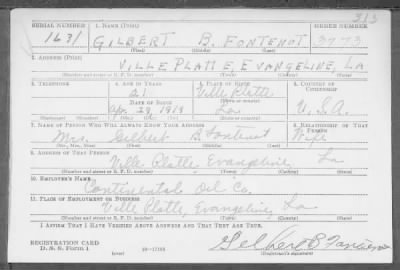 313
SERIAL NUMBER 1. NAME (Print) ORDER NUMBER
1631 GILBERT B. FONTENOT 3773
(First) (Middle) (Last)
2. ADDRESS (Print)
VILLE PLATTE, EVANGELINE, LA
(Number and street or R. F. D. number) (Town) (County) (State)
3. TELEPHONE 4. AGE IN YEARS 5. PLACE OF BIRTH 6. COUNTRY OF CITIZENSHIP
21 Ville Platte
DATE OF BIRTH (Town or county)
Apr 29, 1919 La. U.S.A.
(Exchange) (Number) (Mo.) (Day) (Yr.) (State or country)
7. NAME OF PERSON WHO WILL ALWAYS KNOW YOUR ADDRESS 8. RELATIONSHIP OF THAT PERSON
Mrs. Gilbert B. Fontenot Wife
(Mr., Mrs., Miss) (First) (Middle) (Last)
9. ADDRESS OF THAT PERSON
Ville Platte, Evangeline, La
(Number and street or R. F. D. number) (Town) (County) (State)
10. EMPLOYER'S NAME
Continental Oil Co.
11. PLACE OF EMPLOYMENT OR BUSINESS
Ville Platte, Evangeline, La
(Number and street or R. F. D. number) (Town) (County) (State)
I AFFIRM THAT I HAVE VERIFIED ABOVE ANSWERS AND THAT THEY ARE TRUE.
REGISTRATION CARD
D. S. S. Form 1 (over) Gilbert B Fontenot